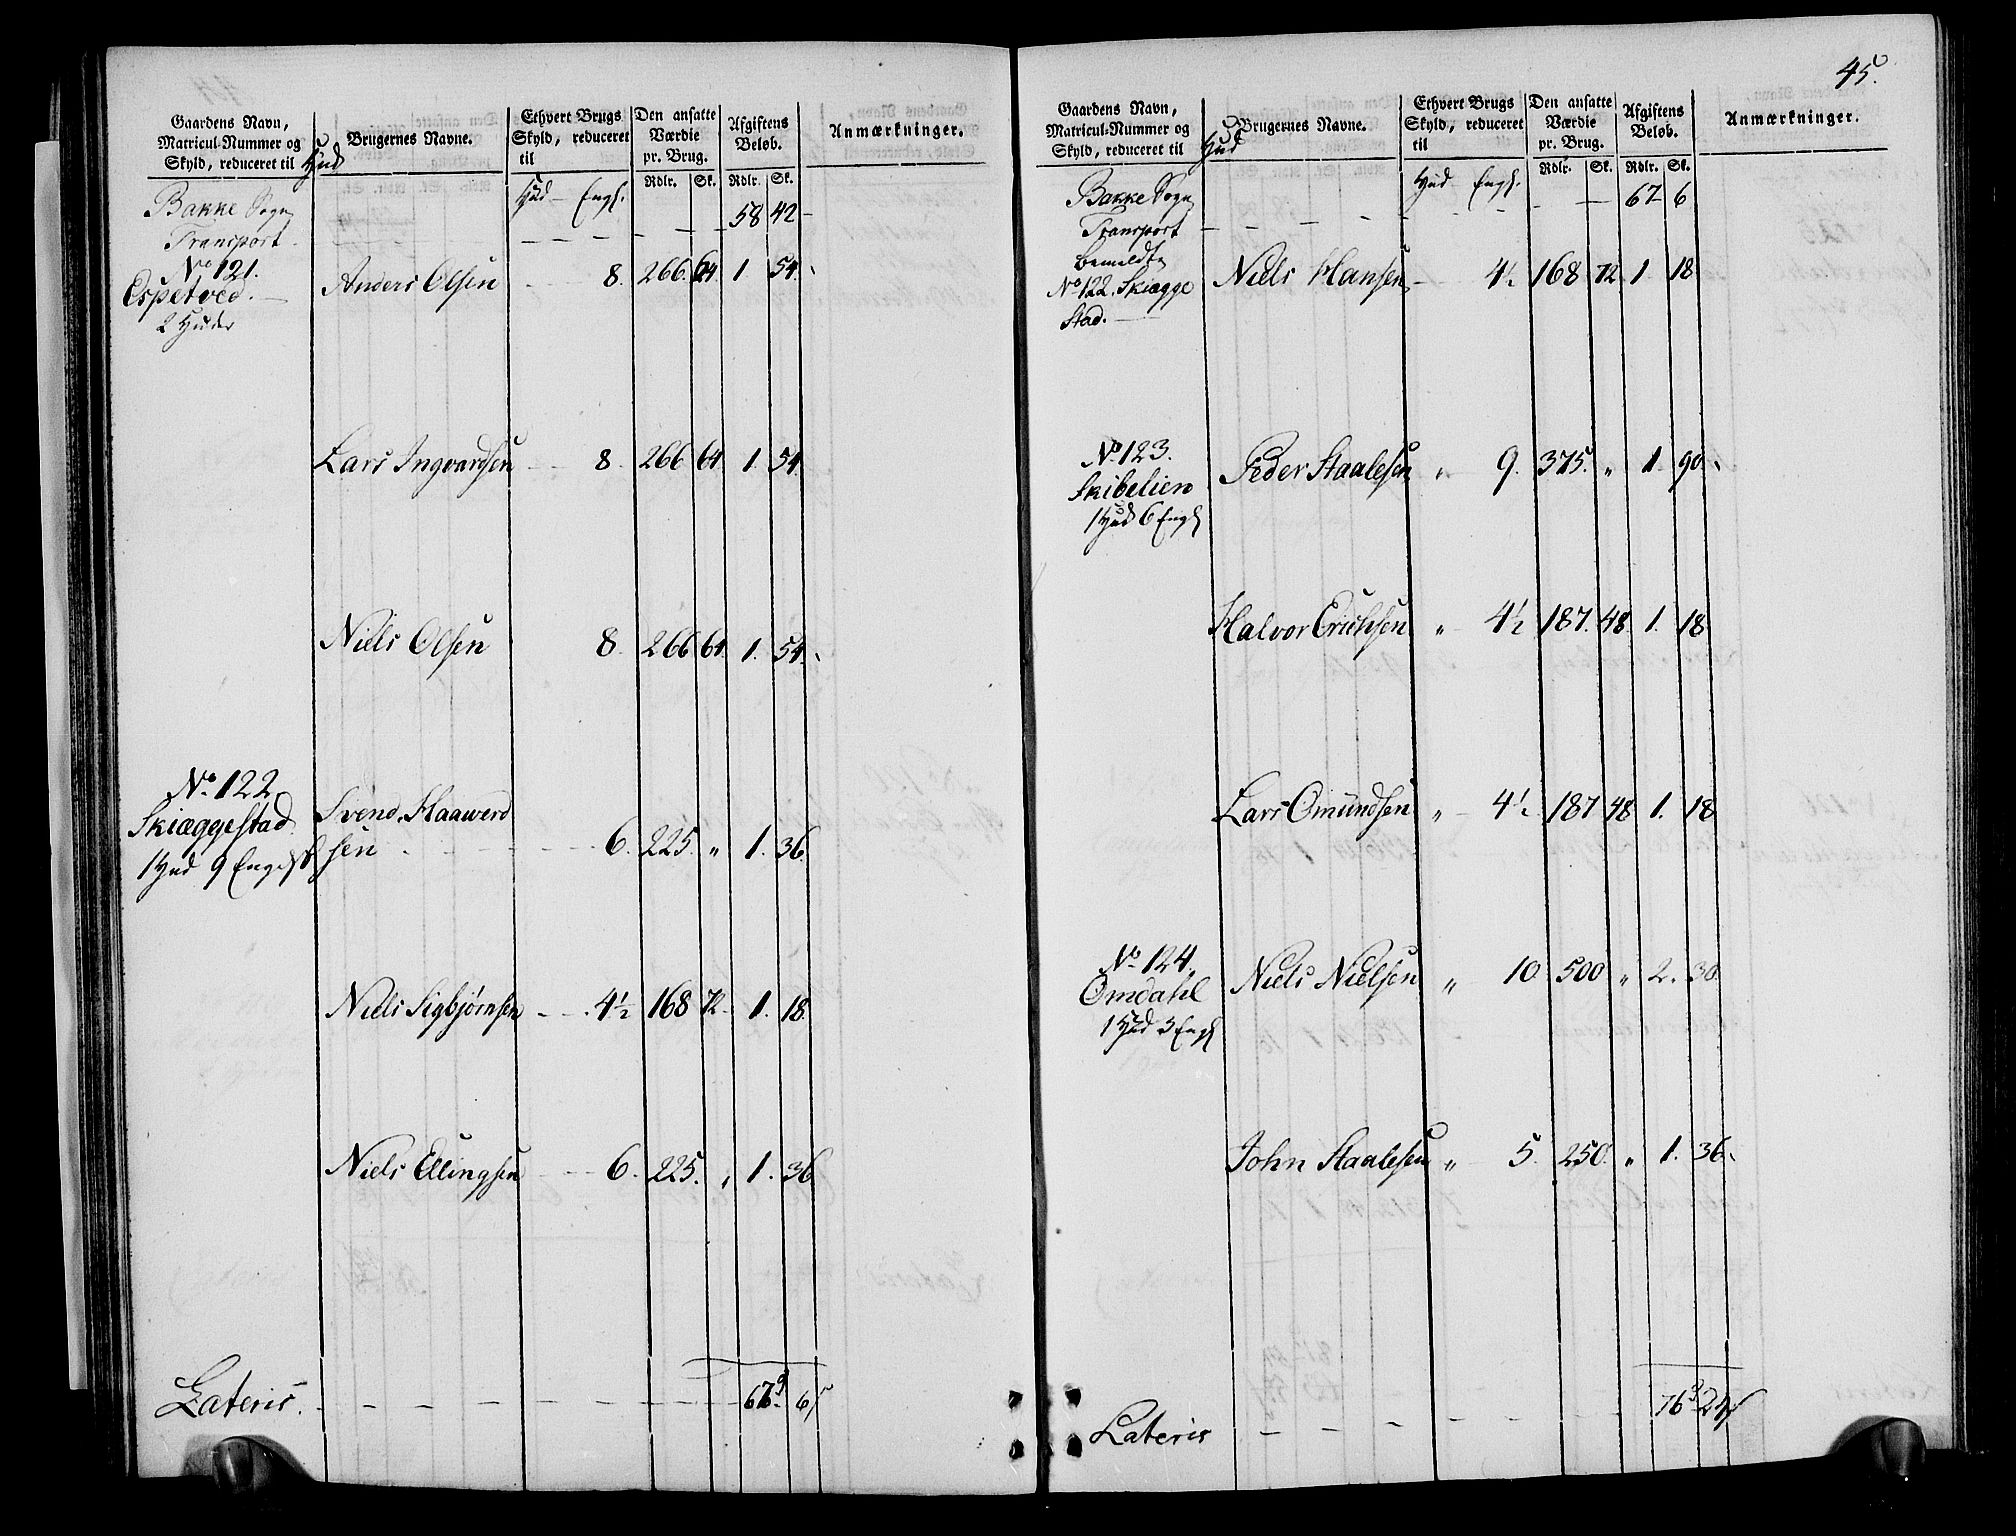 Gaardens Navn, Matricul-Nummer og Skyld, reduceret til Hud | Brugernes Navne. | Ethvert Brugs Skyld, reduceret til | Den ansatte Værdie pr. Brug. | Afgiftens Beløb. | Anmærkninger.
Hud — Engl. | Rdlr. | Sk. | Rdlr. | Sk.
Bakke Sogn
Transport. — — — — — — 58 42 -
No 121. Anders Olsen 8. 266. 64. 1. 54.
Espetved.
2 Huder
Lars Ingvardsen 8. 266 64 1. 54.
Niels Olsen 8. 266 64. 1. 54.
No 122 Svend Haawerd
Skiæggestad sen 6. 225. „ 1. 36.
1 Hud 9 Engl
Niels Sigbjørnsen 4½ 168 72. 1. 18.
Niels Ellingsen 6. 225. „ 1. 36
Lateris. — — — — — 67 6
45.
Gaardens Navn, Matricul-Nummer og Skyld, reduceret til Hud | Brugernes Navne. | Ethvert Brugs Skyld, reduceret til | Den ansatte Værdie pr. Brug. | Afgiftens Beløb. | Anmærkninger.
Hud Engl. | Rdlr. | Sk. | Rdlr. | Sk.
Bakke Sogn 67 6
Transport — — — —
bemeldte Niels Hansen 4½ 168 72 1. 18
No 122. Skiægge
stad.
No 123. Peder Staalesen „ 9. 375. „ 1. 90.
Skibelien
1 Hud 6 Engl
Halvor Erichsen „ 4½ 187. 48. 1. 18
Lars Omundsen „ 4½ 187 48 1. 18
No 124. Niels Nielsen „ 10 500 „ 2. 30
Omdahl
1 Hud 3 Engl
John Staalesen „ 5. 250. „ 1. 36.
Lateris — — — — — 76 24